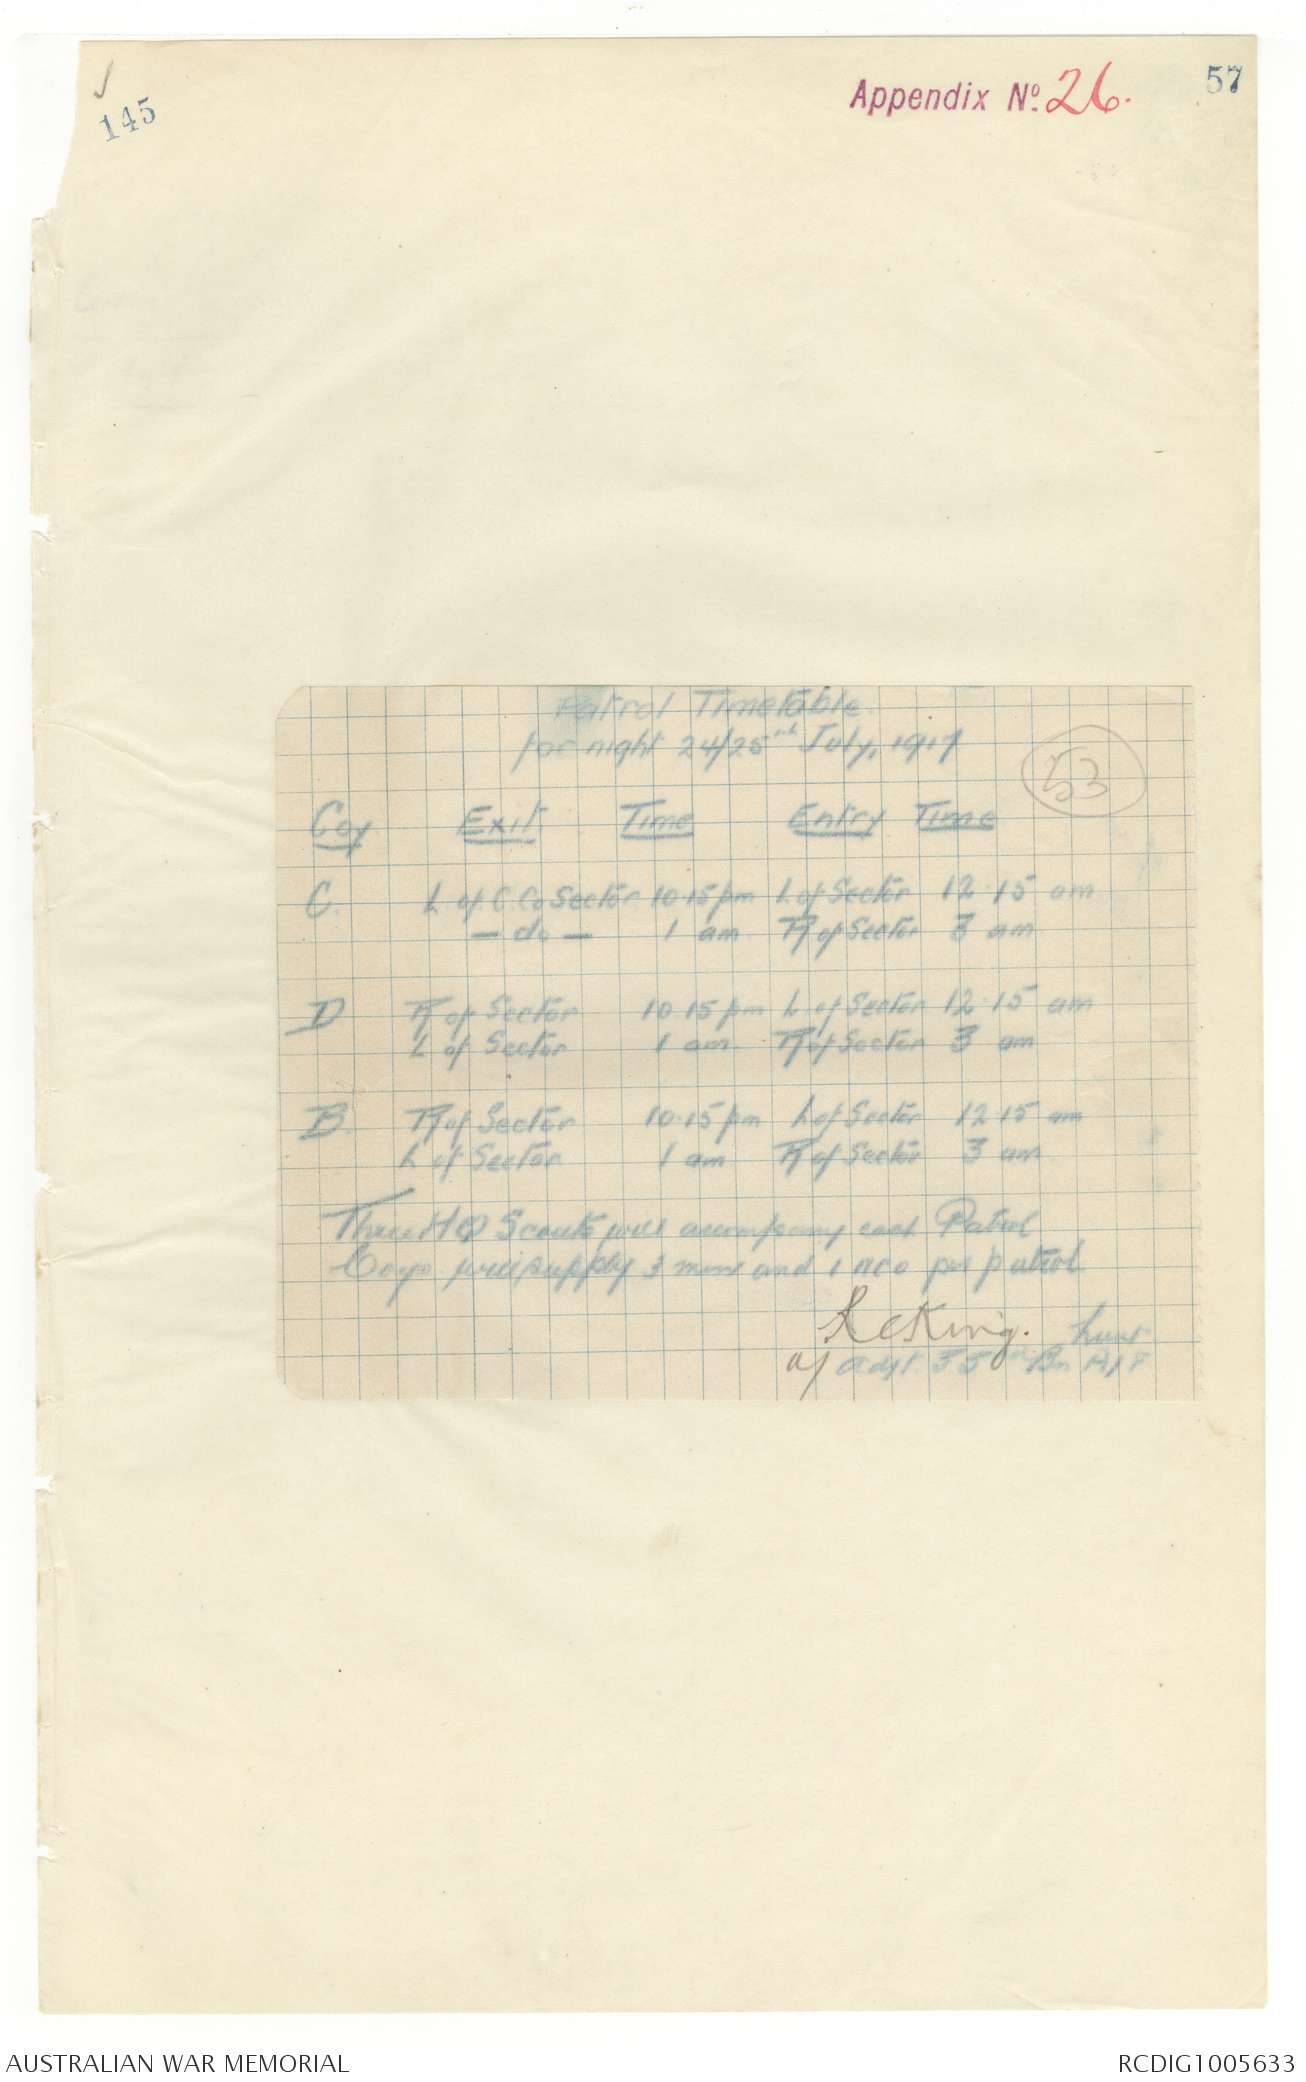 145
Appendix Nº 26.
57
Patrol Timetable
for night 24/25th July, 1917
53
Coy Exit Time Entry Time
C. L of C. Co Sector 10.15 pm L of Sector 12.15 am
— do — 1 am R of Sector 3 am
D R of Sector 10.15 pm L of Sector 12.15 am
L of Sector 1 am R of Sector 3 am
B. R of Sector 10.15 pm L of Sector 12.15 am
L of Sector 1 am R of Sector 3 am
Three HQ Scouts will accompany each Patrol
Coys. will supply 3 men and 1 NCO per patrol
R C King. Lieut
a/ Adjt. 55th Bn AIF
AUSTRALIAN WAR MEMORIAL
RCDIG1005633